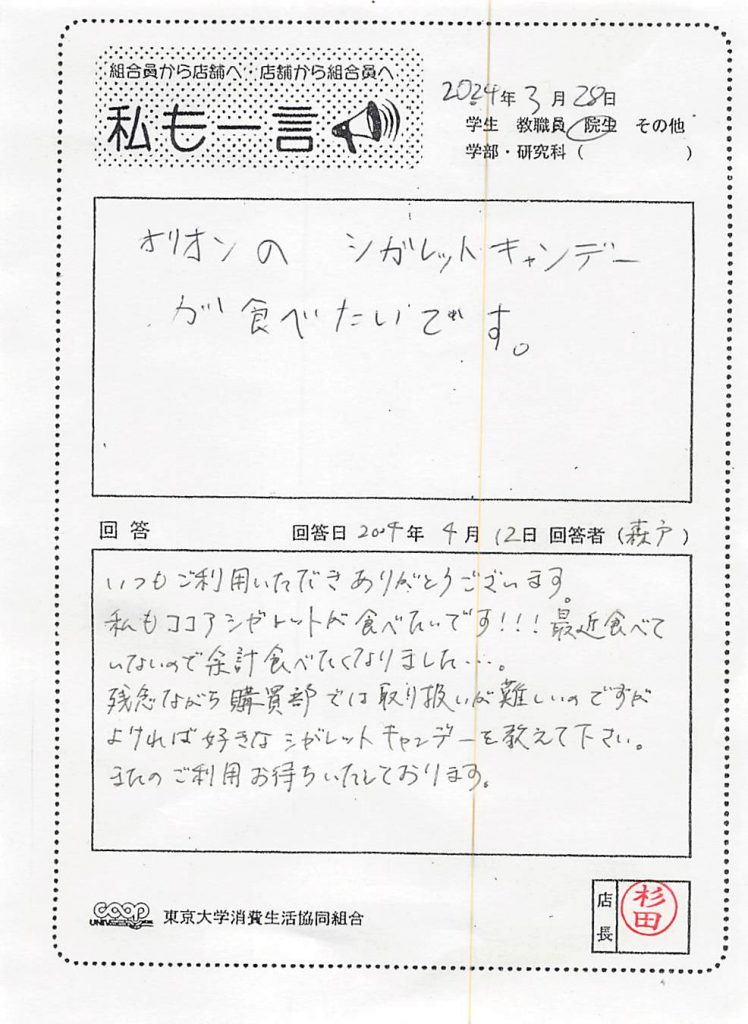 組合員から店舗へ 店舗から組合員へ
私も一言
2024年 3月 28日
学生 教職員 院生 その他
学部・研究科 ( )
オリオンの シガレットキャンデー
が食べたいです。
回答 回答日 2024年 4月 12日 回答者 (森戸)
いつもご利用いただきありがとうございます。
私もココアシガレットが食べたいです!!!最近食べて
いないので余計食べたくなりました…。
残念ながら購買部では取り扱いが難しいのですが
よければ好きなシガレットキャンデーを教えて下さい。
またのご利用お待ちいたしております。
coop 東京大学消費生活協同組合
店長 杉田